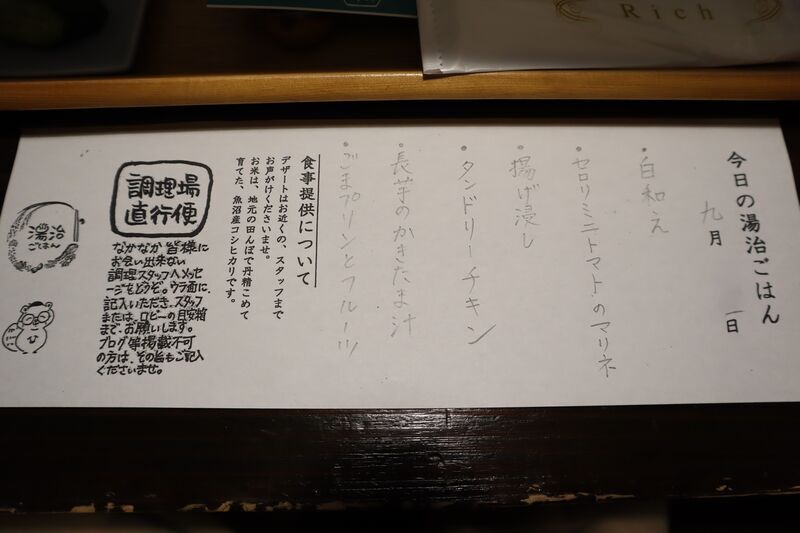 Rich
今日の湯治ごはん
九月 一日
・白和え
・セロリミニトマトのマリネ
・揚げ浸し
・タンドリーチキン
・長芋のかきたま汁
・ごまプリンとフルーツ
食事提供について
デザートはお近くの、スタッフまで
お声がけくださいませ。
お米は、地元の田んぼで丹精こめて
育てた、魚沼産コシヒカリです。
調理場
直行便
なかなか皆様に
お会い出来ない
調理スタッフへメッセ
ージをどうぞ。ウラ面に、
記入いただき、スタッフ
または、ロビーの目安箱
まで、お願いします。
ブログ等掲載不可
の方は、その旨もご記入
くださいませ。
湯治
ごはん